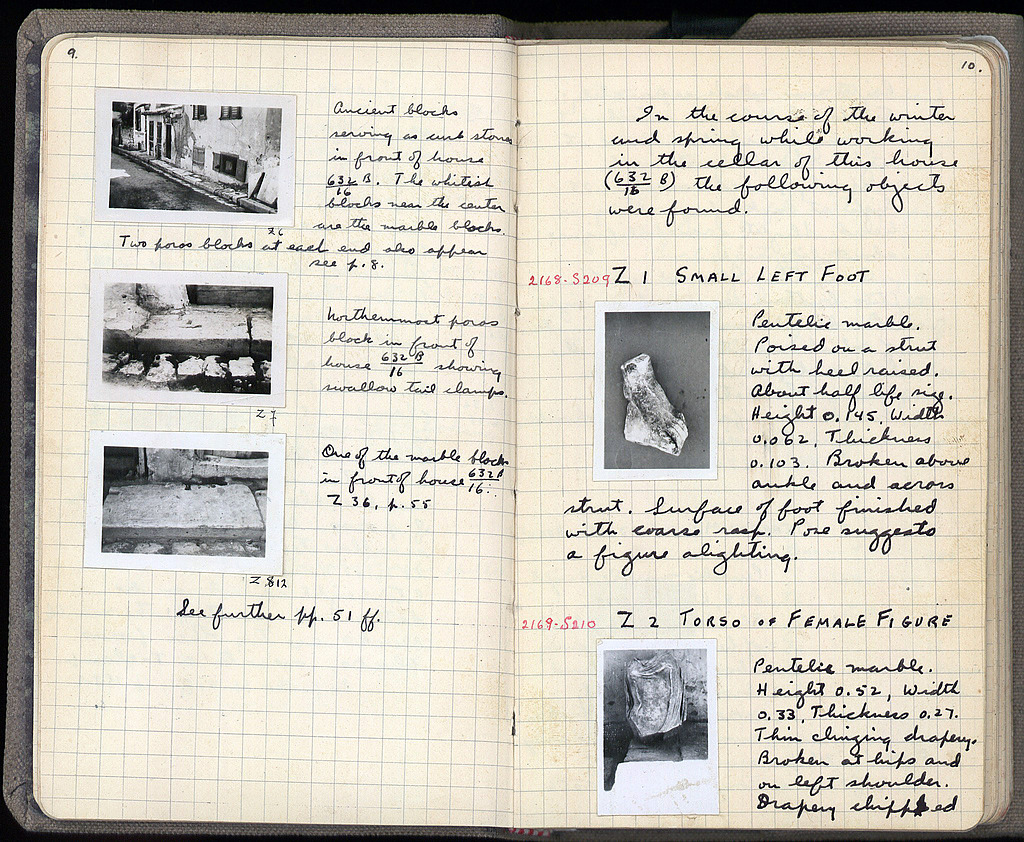 9.
Ancient blocks
serving as curb stones
in front of house
632/16 B. The whitish
blocks near the center
are the marble blocks.
Z 6
Two poros blocks at each end also appear
see p. 8.
Northernmost poros
block in front of
house 632 B/16 showing
swallow tail clamps.
Z 7
One of the marble blocks
in front of house 632 B/16
Z 36, p. 55
Z 812
See further pp. 51 ff.
10.
In the course of the winter
and spring while working
in the cellar of this house
(632/16 B) the following objects
were found.
2168-S209 Z 1 SMALL LEFT FOOT
Pentelic marble.
Poised on a strut
with heel raised.
About half life size.
Height 0.145, Width
0.062, Thickness
0.103. Broken above
ankle and across
strut. Surface of foot finished
with coarse rasp. Pose suggests
a figure alighting.
2169-S210 Z 2 TORSO OF FEMALE FIGURE
Pentelic marble.
Height 0.52, Width
0.33, Thickness 0.27.
Thin clinging drapery.
Broken at hips and
on left shoulder.
Drapery chipped